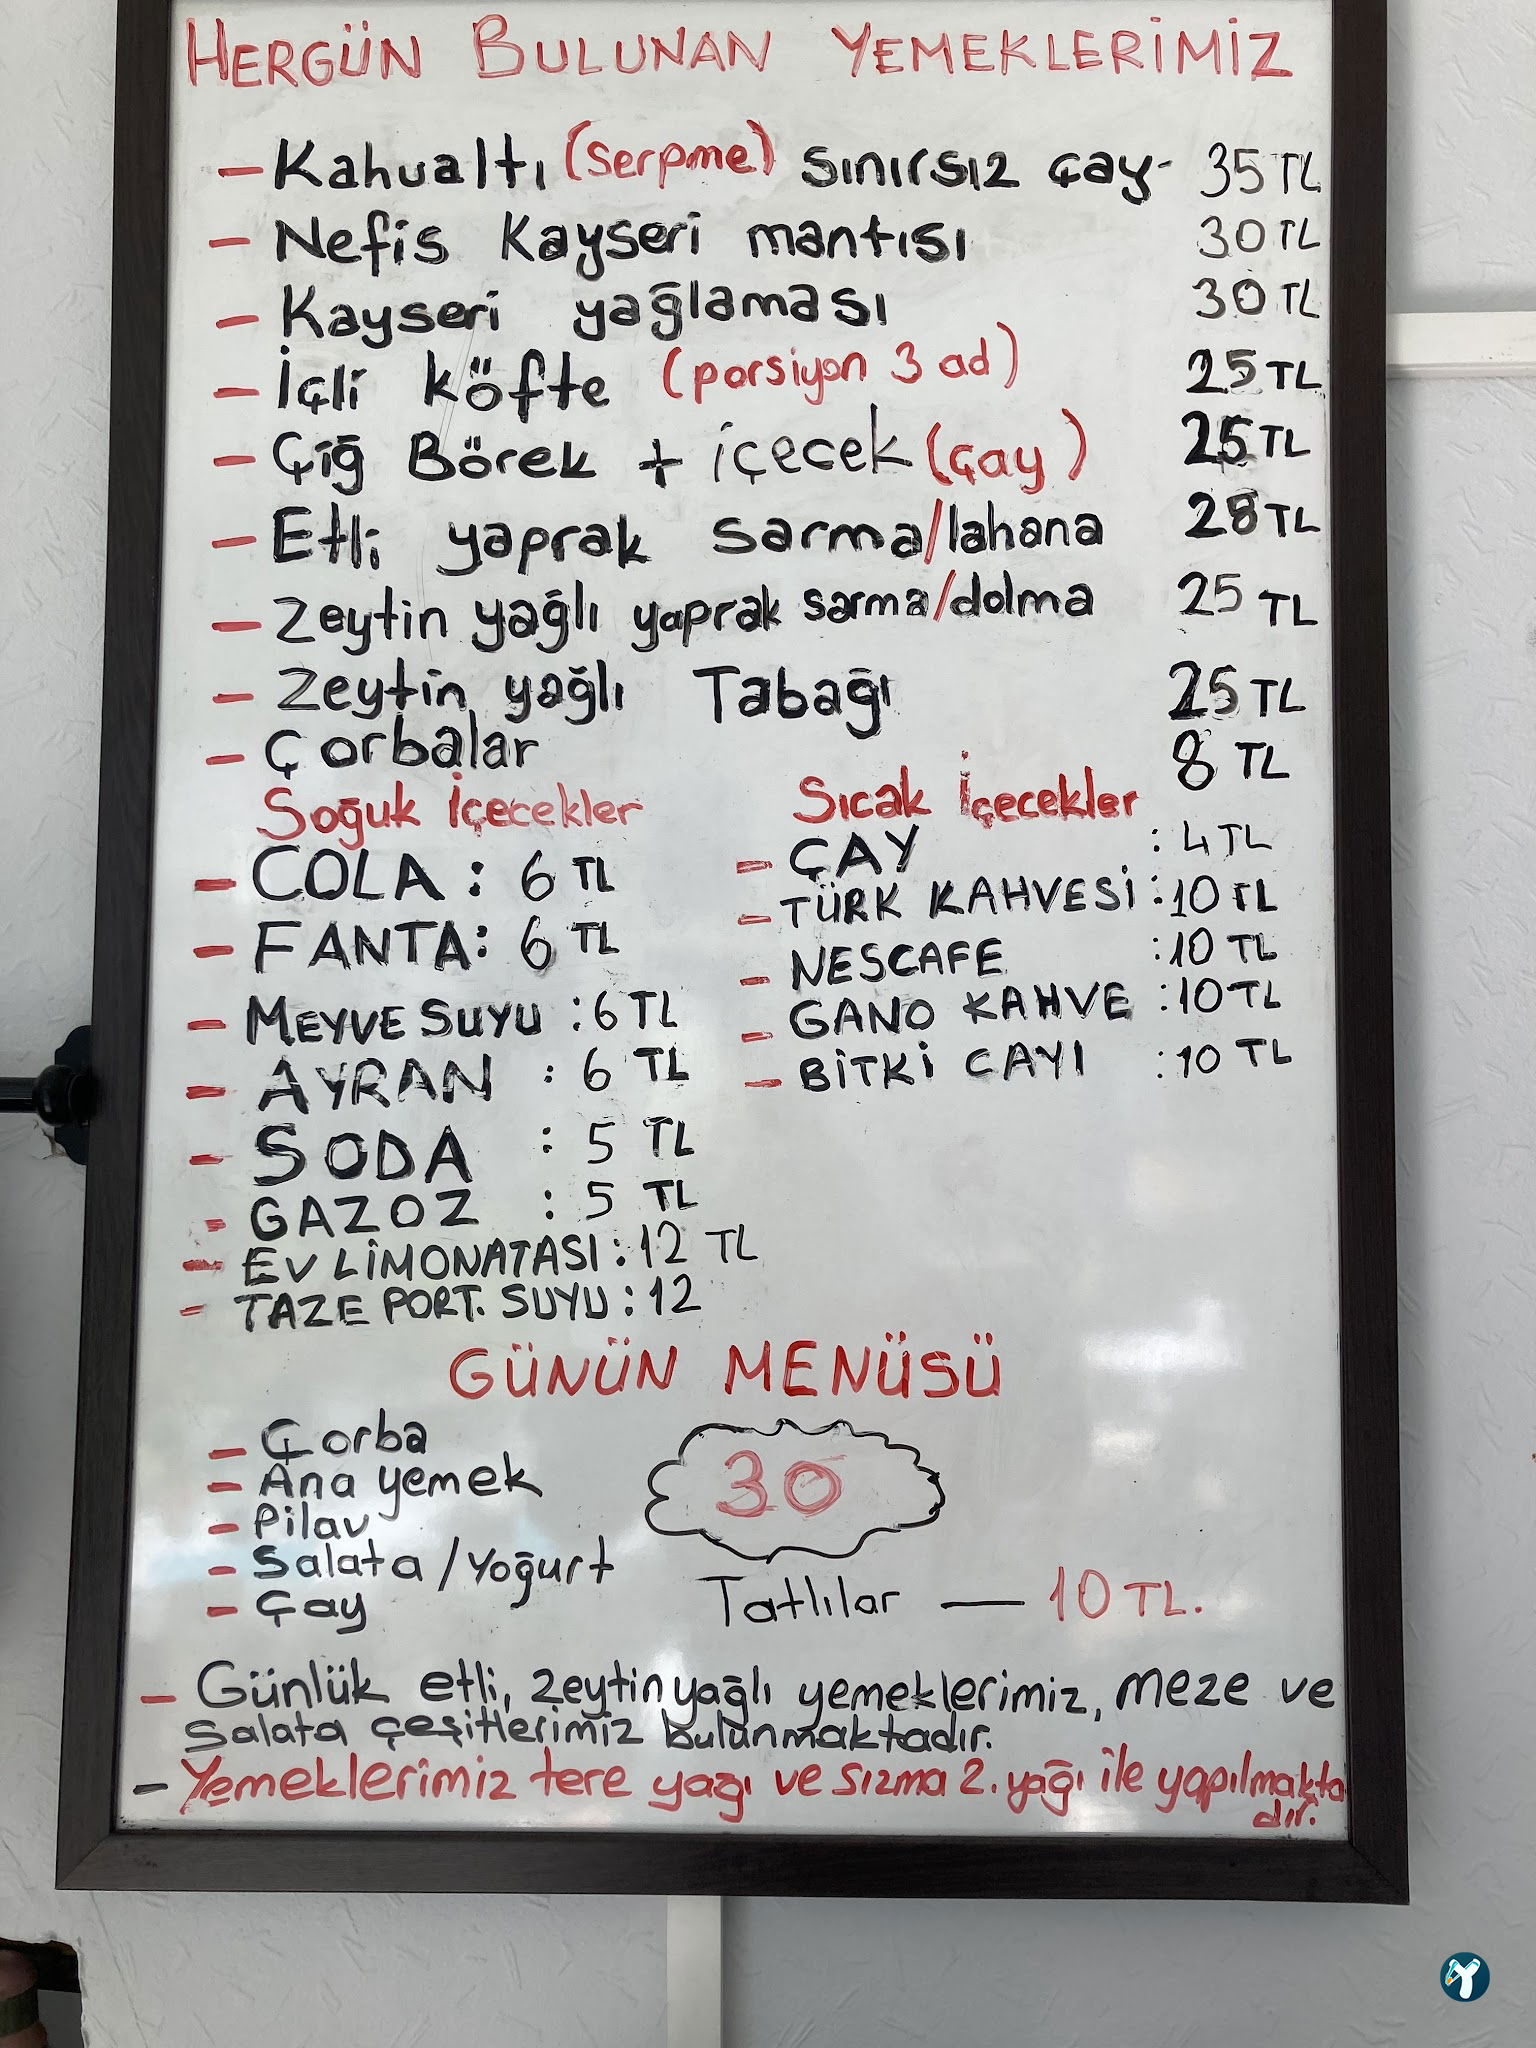 HERGÜN BULUNAN YEMEKLERİMİZ
- Kahualtı (serpme) sınırsız çay- 35 TL
- Nefis Kayseri mantısı 30 TL
- Kayseri yağlaması 30 TL
- İçli köfte (porsiyon 3 ad) 25 TL
- Çiğ Börek + içecek (çay) 25 TL
- Etli yaprak sarma/lahana 28 TL
- Zeytin yağlı yaprak sarma/dolma 25 TL
- Zeytin yağlı Tabağı 25 TL
- Çorbalar 8 TL
Soğuk İçecekler
- COLA : 6 TL
- FANTA : 6 TL
- MEYVE SUYU : 6 TL
- AYRAN : 6 TL
- SODA : 5 TL
- GAZOZ : 5 TL
- EV LİMONATASI : 12 TL
- TAZE PORT. SUYU : 12
Sıcak İçecekler
- ÇAY : 4 TL
- TÜRK KAHVESİ : 10 TL
- NESCAFE : 10 TL
- GANO KAHVE : 10 TL
- BİTKİ CAYI : 10 TL
GÜNÜN MENÜSÜ
- Çorba
- Ana yemek
- Pilav
- Salata / Yoğurt
- Çay
30
Tatlılar — 10 TL.
- Günlük etli, zeytinyağlı yemeklerimiz, meze ve
salata çeşitlerimiz bulunmaktadır.
- Yemeklerimiz tere yağı ve sızma 2. yağı ile yapılmakta
dır.
Y